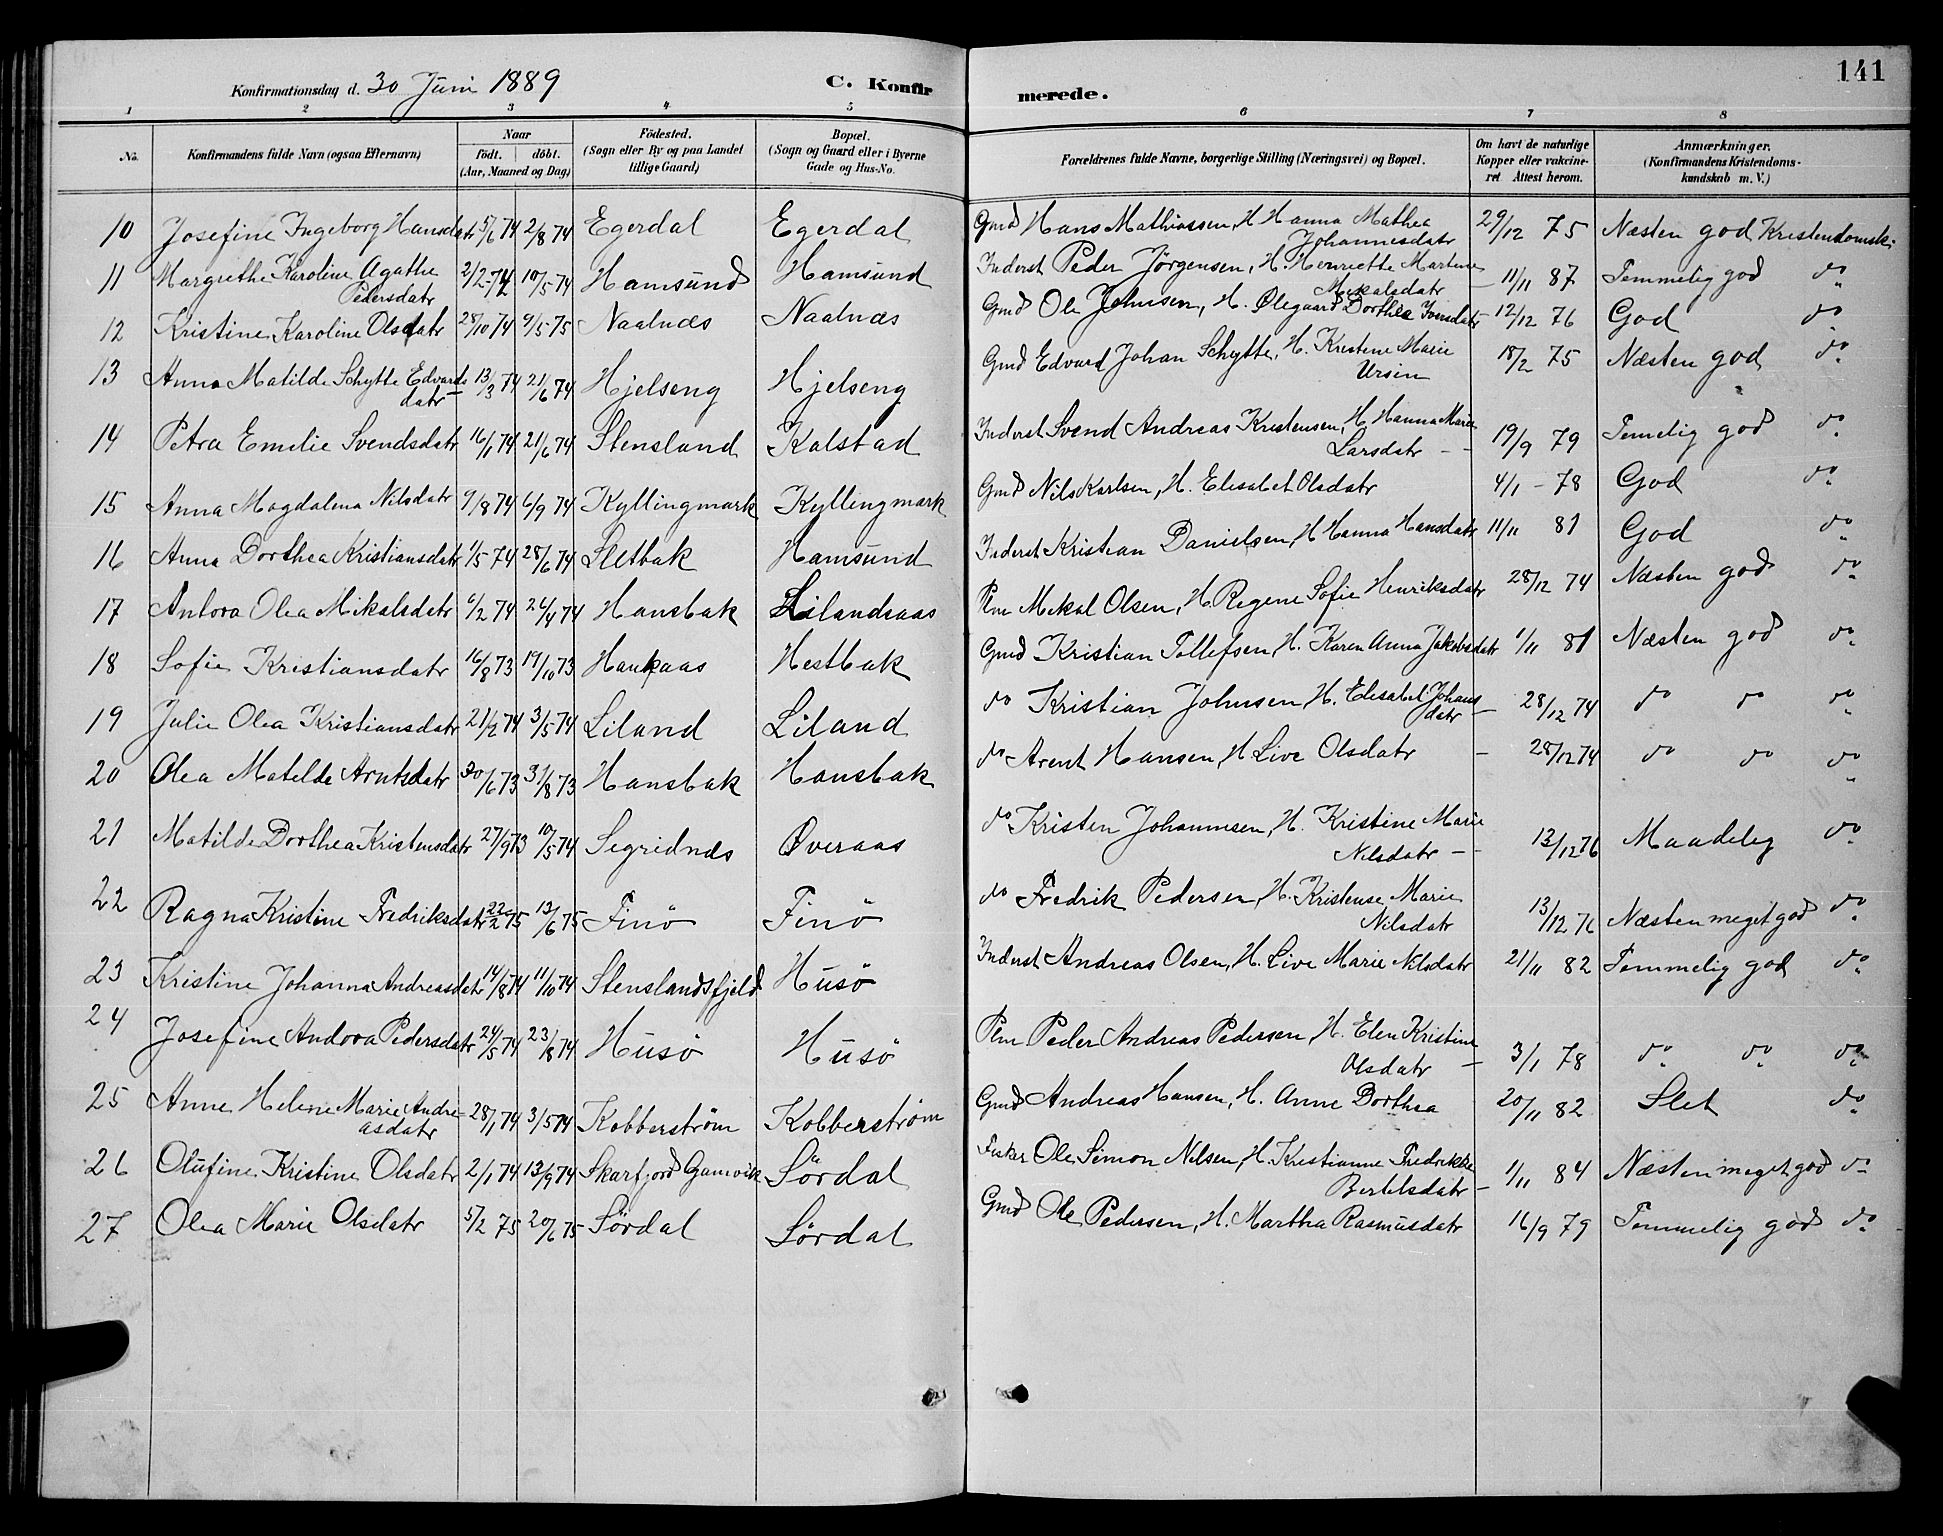 141
Konfirmationsdag d. 30 Juni 1889 C. Konfirmerede.
1 2 3 4 5 6 7 8
No. Konfirmandens fulde Navn (ogsaa Efternavn) Naar födt. döbt. (Aar, Maaned og Dag) Födested. (Sogn eller By og paa Landet tillige Gaard) Bopæl. (Sogn og Gaard eller i Byerne Gade og Hus-No. Forældrenes fulde Navne, borgerlige Stilling (Næringsvei) og Bopæl. Om havt de naturlige Kopper eller vakcineret Attest herom. Anmærkninger. (Konfirmandens Kristendomskundskab m. V.)
10 Josefine Ingeborg Hansdatr 5/6 74 2/8 74 Egerdal Egerdal Gmd Hans Mathiassen, H Hanna Mathea Johannesdatr 29/12 75 Næsten god Kristendomsk:
11 Margrethe Karoline Agathe Pedersdatr 2/2 74 10/5 74 Hamsund Hamsund Inderst Peder Jörgensen, H. Henriette Martine Mikalsdatr – 11/11 87 Temmelig god do
12 Kristine Karoline Olsdatr 28/10 74 9/5 75 Naalnæs Naalnæs Gmd Ole Johnsen, H. Ølegaard Dorthea Iversdatr 12/12 76 God do
13 Anna Matilde Schytte Edvardsdatr 13/3 74 21/6 74 Hjelseng Hjelseng Gmd Edvard Johan Schytte, H. Kristine Marie Ursin 18/2 75 Næsten god do
14 Petra Emilie Svendsdatr 16/1 74 21/6 74 Stensland Kalstad Inderst Svend Andreas Kristensen, H. Hanna Marie Larsdatr – – 19/9 79 Temelig god do
15 Anna Magdalena Nilsdatr 9/8 74 6/9 74 Kyllingmark Kyllingmark Gmd Nils Karlsen, H. Elisabet Olsdatr 4/1 – 78 God do
16 Anna Dorthea Kristiansdatr 1/5 74 28/6 74 Sletbak Hamsund Inderst Kristian Danielsen, H Hanna Hansdatr 11/11 81 God do
17 Antora Olea Mikalsdatr 6/2 74 26/4 74 Hansbak Lilandsaas Plm Mekal Olsen, H Regine Sofie Henriksdatr 28/12 74 Næsten god do
18 Sofie Kristiansdatr 16/8 73 19/10 73 Haukaas Hestbak Gmd Kristian Tollefsen, H. Karen Anna Jakobsdatr 1/11 81 Næsten god do
19 Julie Olea Kristiansdatr 21/2 74 3/5 74 Liland Liland do Kristian Johnsen, H. Elisabet Johansdatr – 28/12 74 do do do
20 Olea Matilde Arntsdatr 30/6 73 31/8 73 Hansbak Hansbak do Arent Hansen, H Live Olsdatr – 28/12 74 do do do
21 Matilde Dorthea Kristensdatr 27/9 73 10/5 74 Segridnæs Øveraas do Kristen Johannesen, H. Kristine Marie Nilsdatr – – 13/12 76 Maadelig do
22 Ragna Kristine Fredriksdatr 22/2 75 13/6 75 Finö Finö do Fredrik Pedersen, H. Kristense Marie Nilsdatr 13/12 76 Næsten meget god do
23 Kristine Johanna Andreasdatr 14/8 74 11/10 74 Stenslandsfjeld Husö Inderst Andreas Olsen, H. Live Marie Nilsdatr 21/11 82 Temmelig god do
24 Josefine Andora Pedersdatr 24/5 74 23/8 74 Husö Husö Plm Peder Andreas Pedersen, H. Elen Kristine Olsdatr – 3/1 78 do do do
25 Anne Helene Marie Andreasdatr 28/1 74 3/5 74 Kobberström Kobberström Gmd Andreas Hansen, H. Anne Dorthea 20/11 82 Slet do
26 Olufine Kristine Olsdatr 2/1 74 13/9 74 Skarfjord Gamvik Sördal Fisker Ole Simon Nilsen, H. Kristianne Fredrikke Bertelsdatr – 1/11 84 Næsten meget god do
27 Olea Marie Olsdatr 5/2 75 20/6 75 Sördal Sördal Gmd Ole Pedersen, H. Martha Rasmusdatr 16/9 79 Temmelig god do